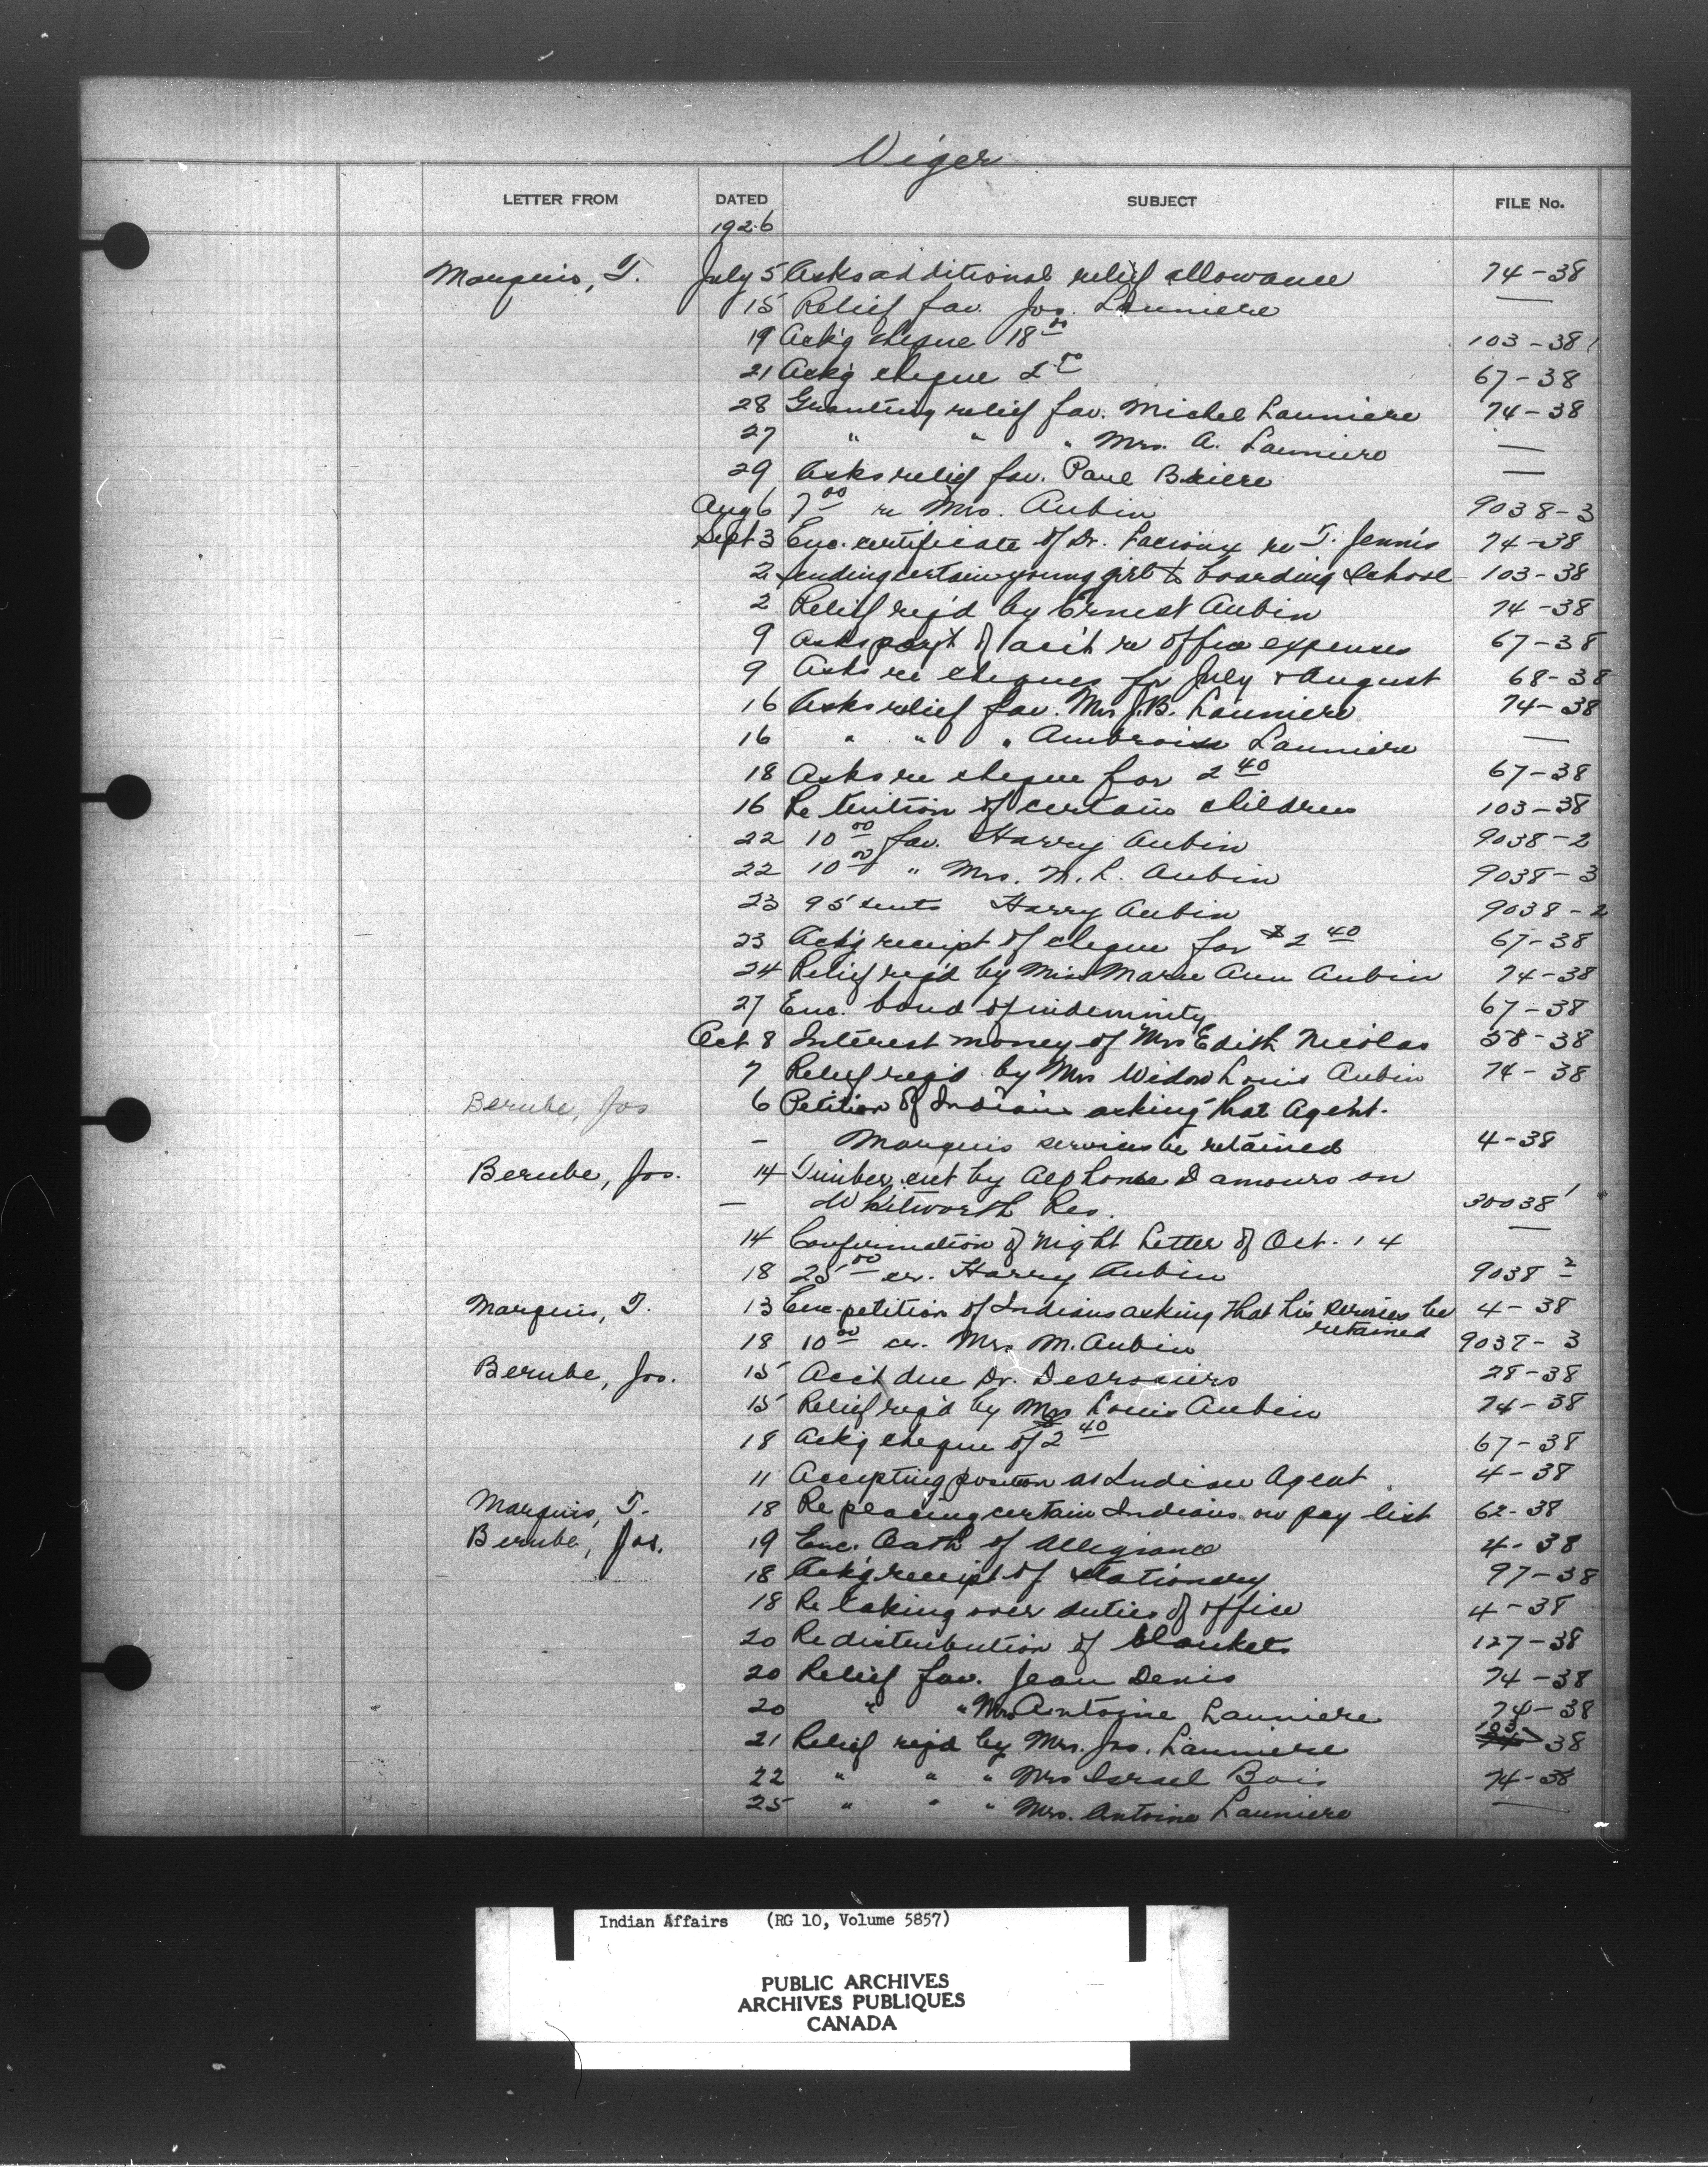 Viger
LETTER FROM DATED SUBJECT FILE No.
1926
Marquis, T. July 5 Asks additional relief allowance 74-38
15 Relief fav. Jos. Launiere —
19 Ack'g cheque 18 00 103-38
21 Ack'g cheque 67-38
28 Granting relief fav. Michel Launiere 74-38
27 " " " Mrs. A. Launiere —
29 Asks relief fav. Paul Briere —
Aug 6 7 00 re Mrs. Aubin 9038-3
Sept 3 Enc. certificate of Dr. re T. Jennis 74-38
2 Sending certain young girls to boarding school 103-38
2 Relief req'd by Ernest Aubin 74-38
9 Asks pay't of acc't re office expenses 67-38
9 Asks re cheques for July & August 68-38
16 Asks relief fav. Mrs J.B. Launiere 74-38
16 " " " Ambroise Launiere —
18 Asks re cheque for 2 40 67-38
16 Re tuition of certain children 103-38
22 10 00 fav. Harry Aubin 9038-2
22 10 00 " Mrs. M. L. Aubin 9038-3
23 95 cents Harry Aubin 9038-2
23 Ack'g receipt of cheque for $2 40 67-38
24 Relief req'd by Miss Marie Ann Aubin 74-38
27 Enc. bond of indemnity 67-38
Oct 8 Interest money of Mrs Edith Nicolas 38-38
7 Relief req'd by Mrs Widow Louis Aubin 74-38
Berube, Jos 6 Petition of Indians asking that Agent.
— Marquis services be retained 4-38
Berube, Jos. 14 Timber cut by Alphonse D'amours on
— Whitworth Res. 30038
14 Confirmation of Night Letter of Oct. 14 —
18 25 00 cr. Harry Aubin 9038-2
Marquis, T. 13 Enc. petition of Indians asking that his services be 4-38
retained
18 10 00 cr. Mrs M. Aubin 9037-3
Berube, Jos. 15 Acc't due Dr. Desrosiers 28-38
15 Relief req'd by Mrs Louis Aubin 74-38
18 Ack'g cheque of $2 40 67-38
11 Accepting position as Indian Agent 4-38
Marquis, T. 18 Re placing certain Indians on pay list 62-38
Berube, Jos. 19 Enc. Oath of Allegiance 4-38
18 Ack'g receipt of stationery 97-38
18 Re taking over duties of office 4-38
20 Re distribution of blankets 127-38
20 Relief fav. Jean Denis 74-38
20 " " Mrs Antoine Launiere 74-38
21 Relief req'd by Mrs. Jos. Launiere 103-38
22 " " " Mrs Israel Bois 74-38
25 " " " Mrs. Antoine Launiere —
Indian Affairs (RG 10, Volume 5857)
PUBLIC ARCHIVES
ARCHIVES PUBLIQUES
CANADA